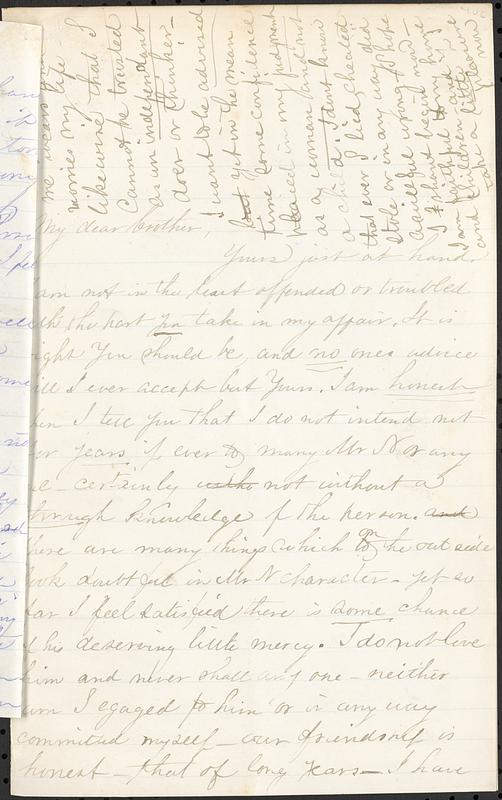 My dear brother,
Yours just at hand.
am not in the least offended or troubled
the part you take in my affair. It is
right You should be, and no ones advice
ill I ever accept but Yours. I am honest
hen I tell you that I do not intend not
for years if ever to marry Mr N or any
certainly not without a
through Knowledge of the person. and
there are many things which on the out side
look doubtful in Mr N character - yet so
far I feel satisfied there is some chance
of his deserving little mercy. I do not love
him and never shall any one - neither
am I egaged to him or in any way
committed myself - our friendship is
honest - that of long years - I have
worries my life
likewise that I
cannot be trusted
as an independent
doer or thinker -
I want to be advised
but yet in the mean
time some confidence
in my judgment
as a woman and not
a child. I dont know
that ever I lied cheated
stole or in any way did
a wrong I hope
I am faithful to my
children and
take a little